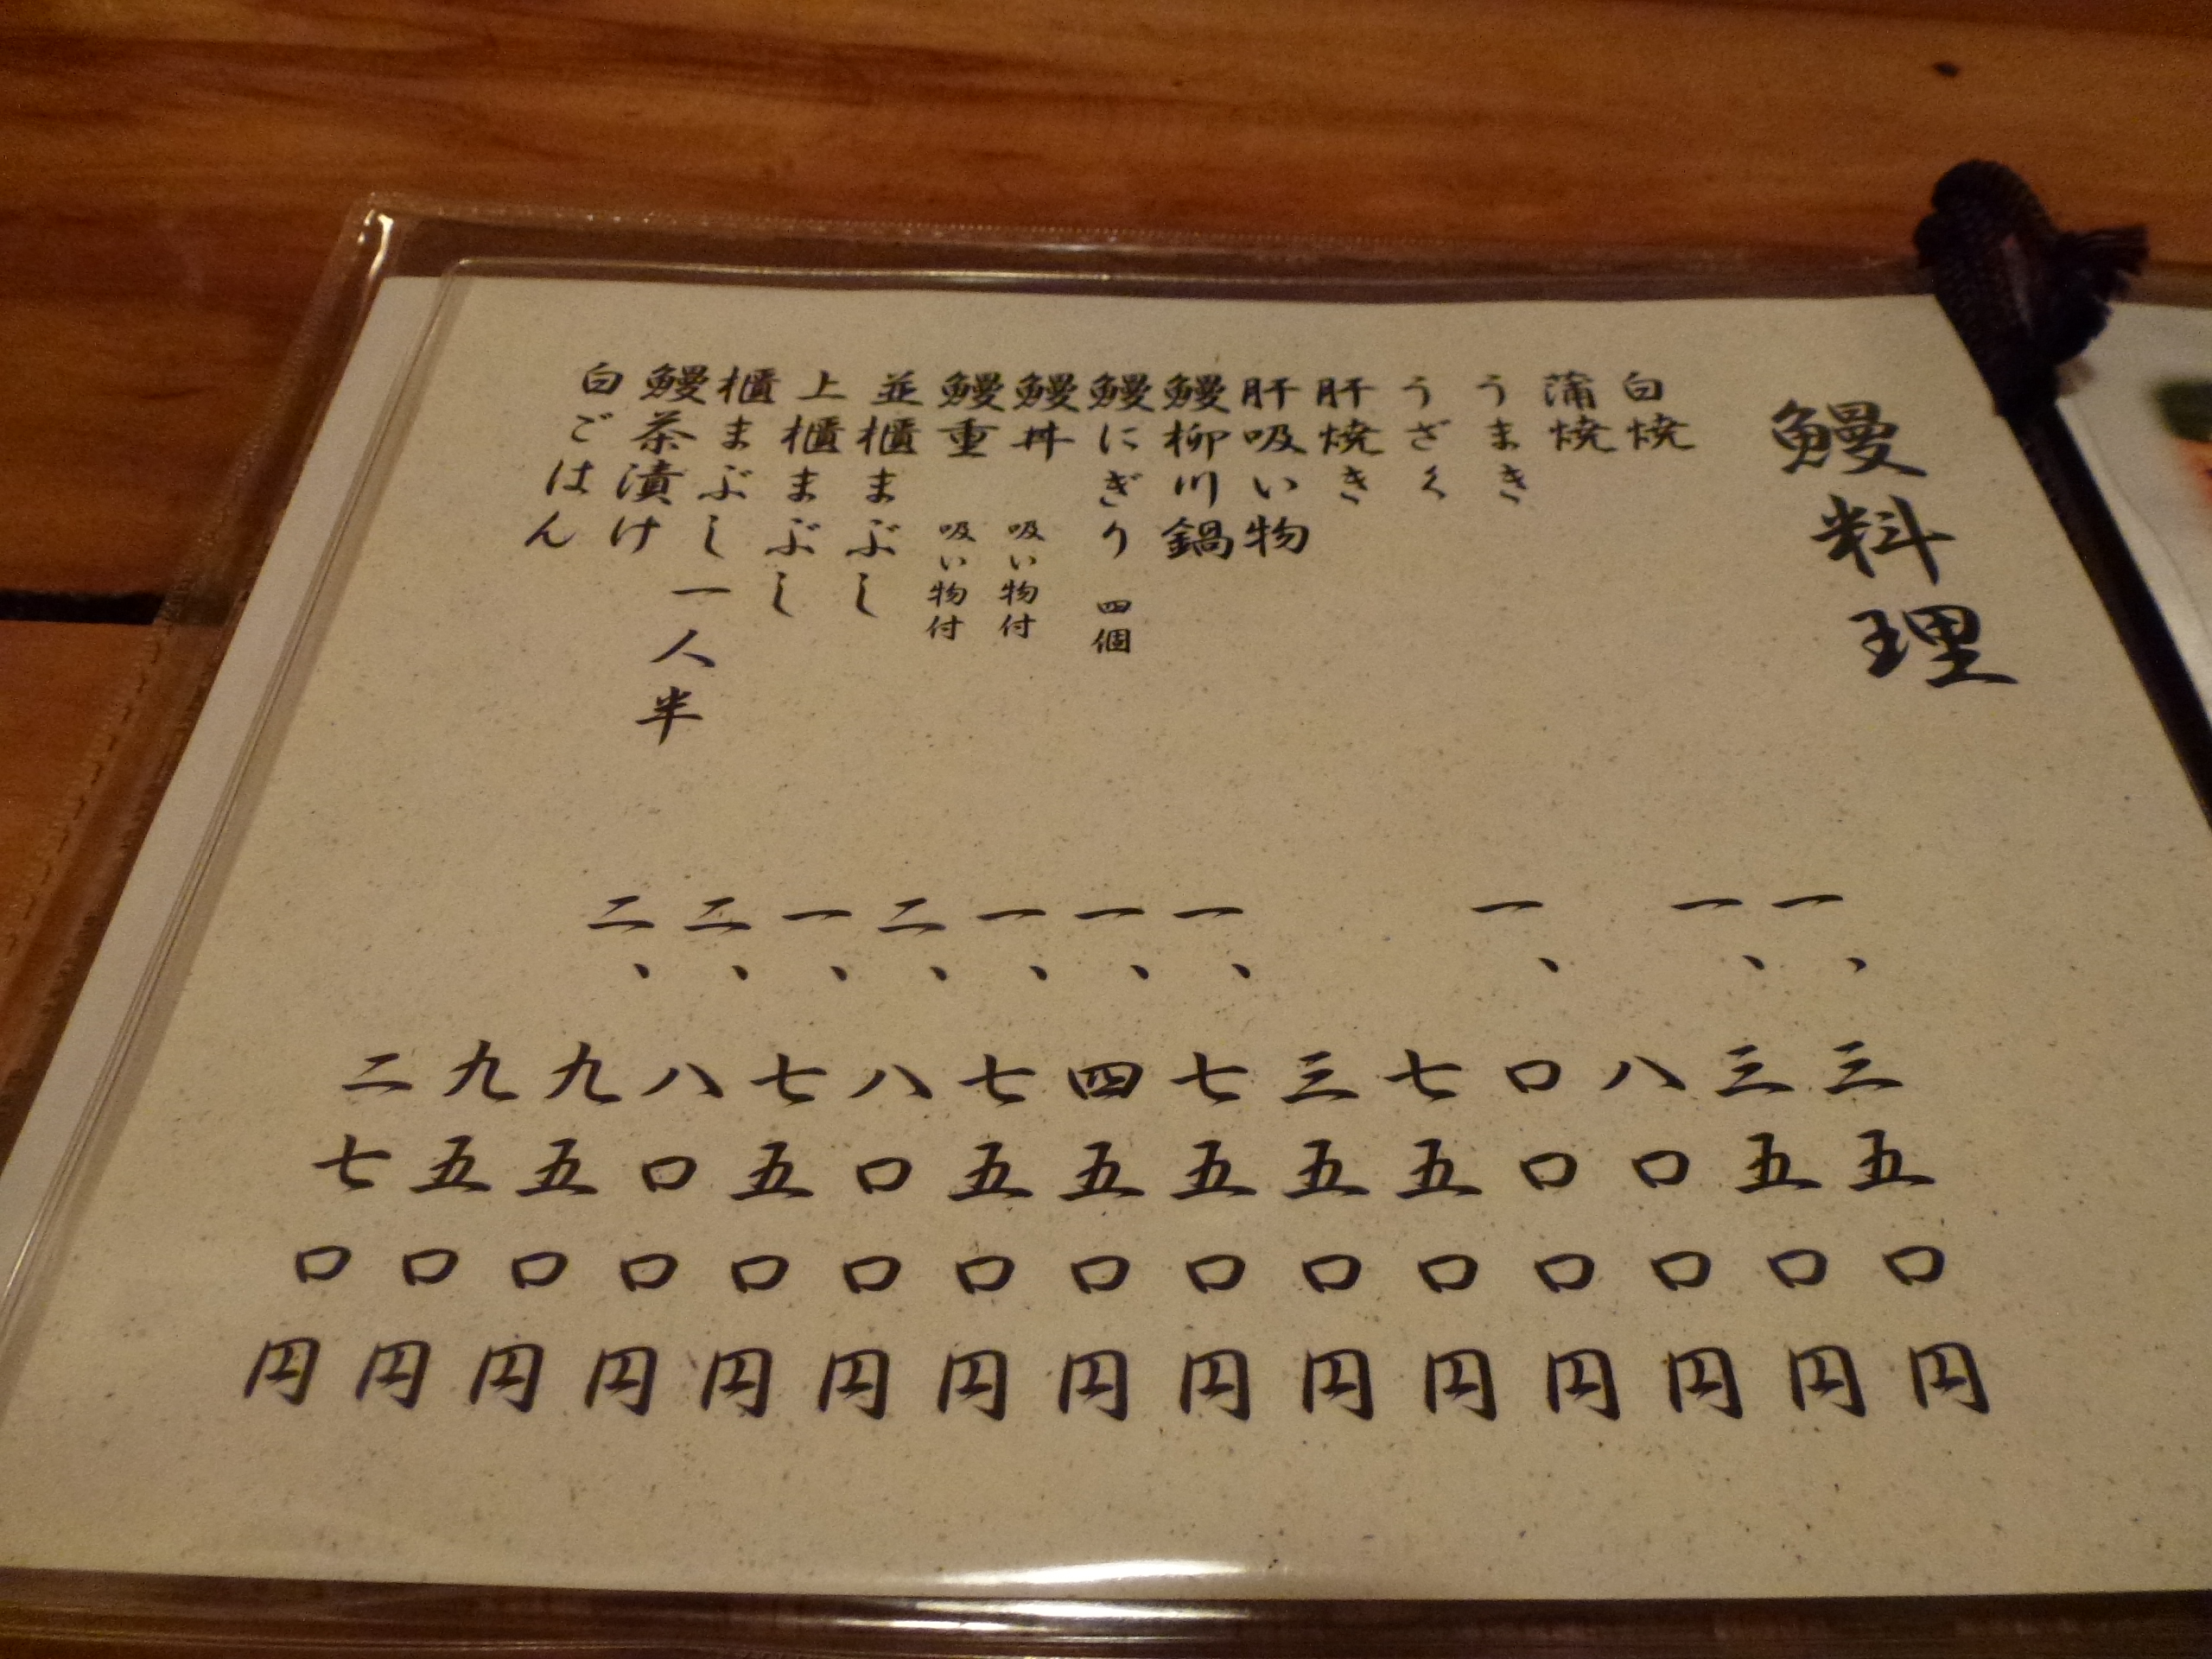 鰻料理
白焼 一、三五〇円
蒲焼 一、三五〇円
うまき 八〇〇円
うざく 一、〇〇〇円
肝焼き 七五〇円
肝吸い物 三五〇円
鰻柳川鍋 一、七五〇円
鰻にぎり 四個 一、四五〇円
鰻丼 吸い物付 一、七五〇円
鰻重 吸い物付 二、八〇〇円
並櫃まぶし 一、七五〇円
上櫃まぶし 二、八〇〇円
櫃まぶし一人半 二、九五〇円
鰻茶漬け 九五〇円
白ごはん 二七〇円